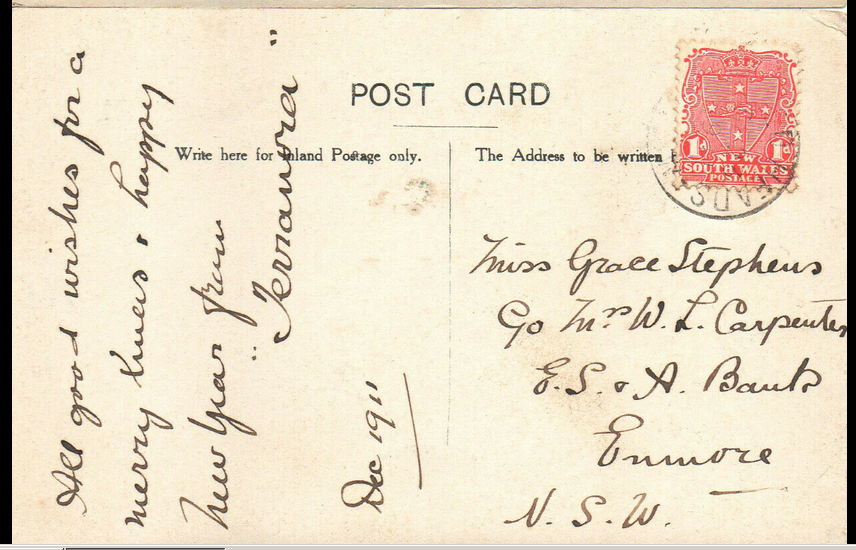 POST CARD
Write here for Inland Postage only.
The Address to be written
1d 1d
NEW
SOUTH WALES
POSTAGE
All good wishes for a
merry Xmas & happy
New Year from
"Terranora"
Dec 1911
Miss Grace Stephens
C/o Mrs W. L. Carpenter
E. S. & A. Bank
Enmore
N. S. W.